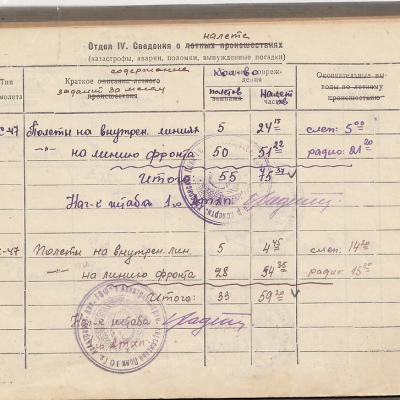 налете
Отдел IV. Сведения о летных происшествиях
(катастрофы, аварии, поломки, вынужденные посадки)
Тип самолета
содержание
Краткое описание летного происшествия
заданий за месяц
Кол-во
полетов
Налет
часов
Окончательные выводы по летному происшествию
С-47 Полеты на внутрен. линиях 5 24 15 слеп: 5 00
—"— на линию фронта 50 51 22 радио: 21 20
Итого: 55 75 37
Нач-к штаба 1 о
С-47 Полеты на внутрен. лин. 5 4 45 слеп: 14 20
—"— на линию фронта 28 54 35
Итого: 33 59 20
Нач-к штаба